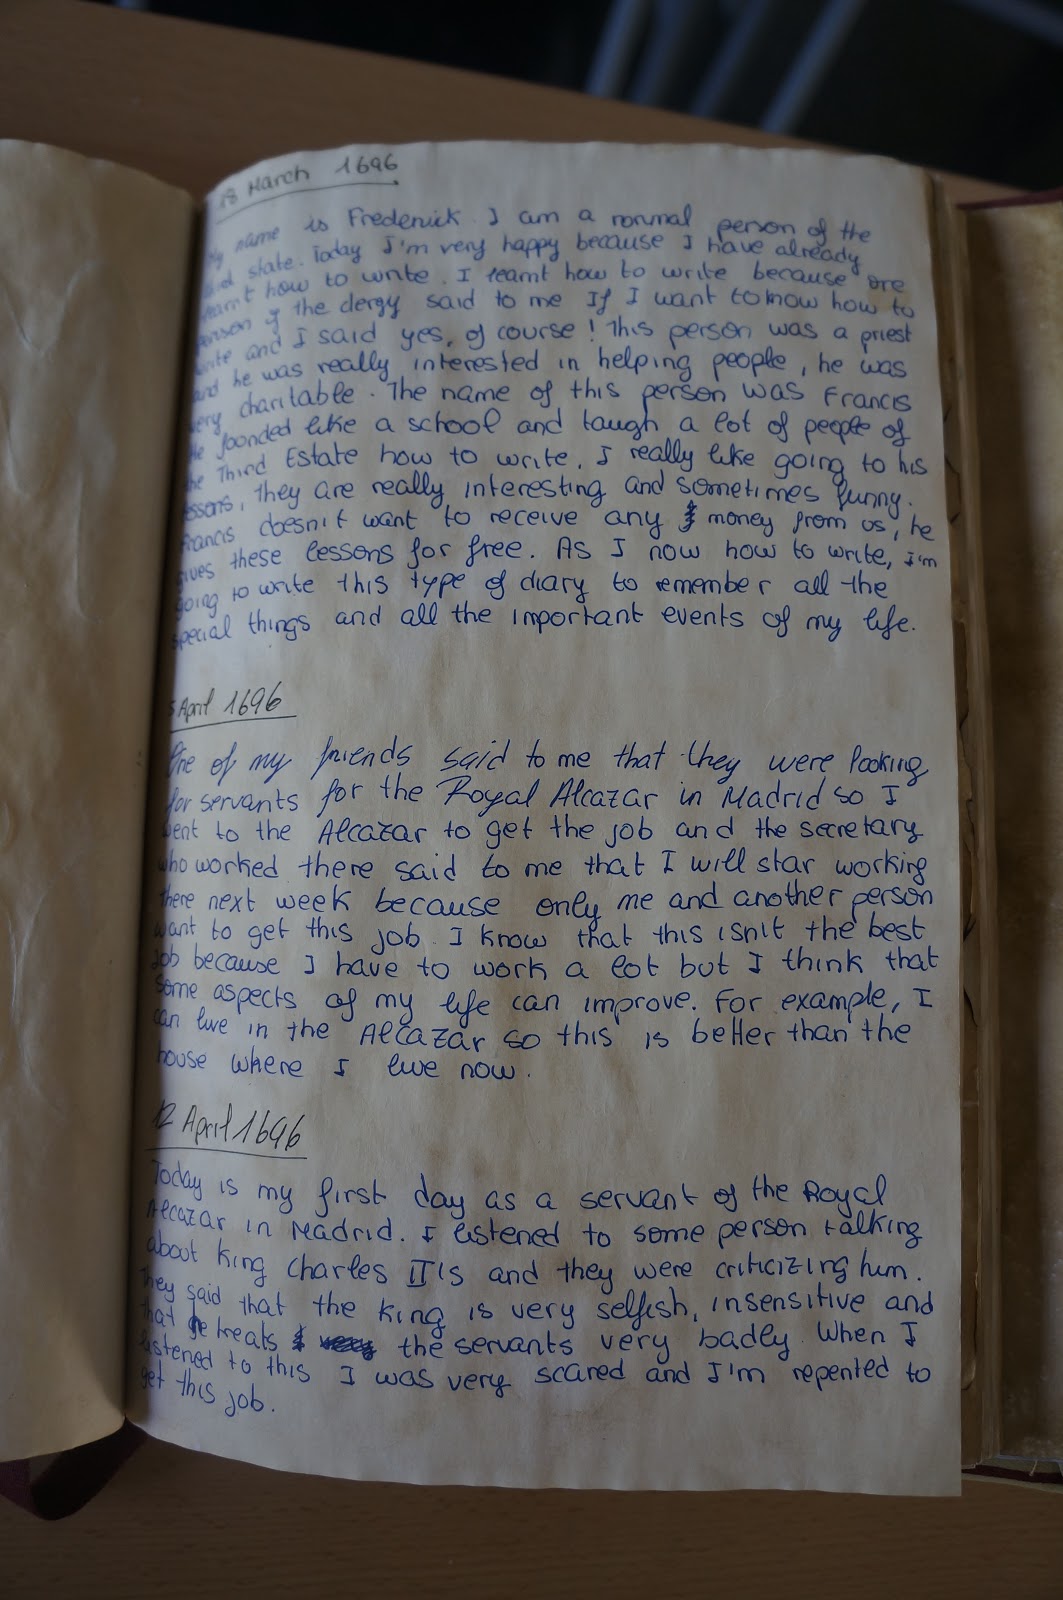 18 March 1696
My name is Frederick. I am a normal person of the
third state. Today I'm very happy because I have already
learnt how to write. I learnt how to write because one
person of the clergy said to me If I want to know how to
write and I said yes, of course! This person was a priest
and he was really interested in helping people, he was
very charitable. The name of this person was Francis
He founded like a school and taugh a lot of people of
the Third Estate how to write. I really like going to his
lessons, they are really interesting and sometimes funny.
Francis doesn't want to receive any money from us, he
gives these lessons for free. As I now how to write, I'm
going to write this type of diary to remember all the
special things and all the important events of my life.
5 April 1696
One of my friends said to me that they were looking
for servants for the Royal Alcazar in Madrid so I
went to the Alcazar to get the job and the secretary
who worked there said to me that I will star working
there next week because only me and another person
want to get this job. I know that this isn't the best
job because I have to work a lot but I think that
some aspects of my life can improve. For example, I
can live in the Alcazar so this is better than the
house where I live now.
12 April 1696
Today is my first day as a servant of the Royal
Alcazar in Madrid. I listened to some person talking
about King Charles II's and they were criticizing him.
They said that the king is very selfish, insensitive and
that he treats the servants very badly. When I
listened to this I was very scared and I'm repented to
get this job.